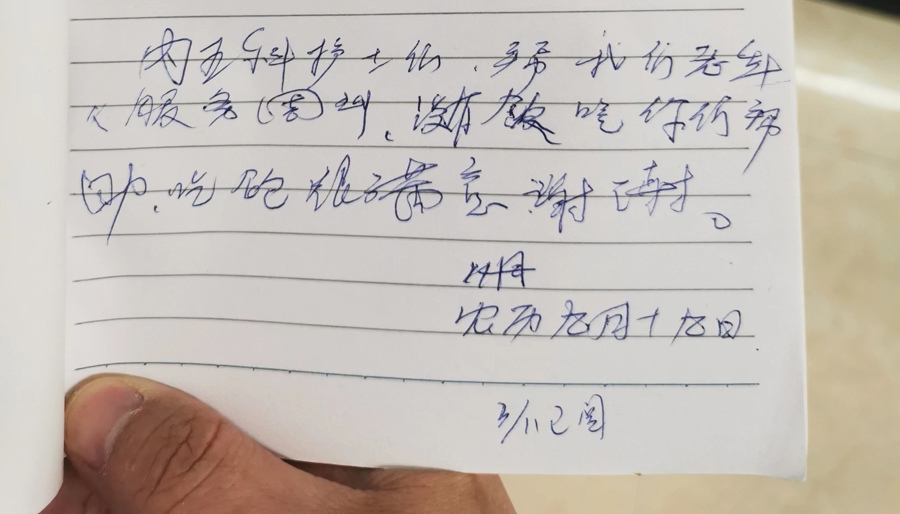 内五科护士们、帮我们老年
人服务周到、没有饭吃你们帮
助、吃饱很满意谢谢。
农历九月十九日
3/11已阅